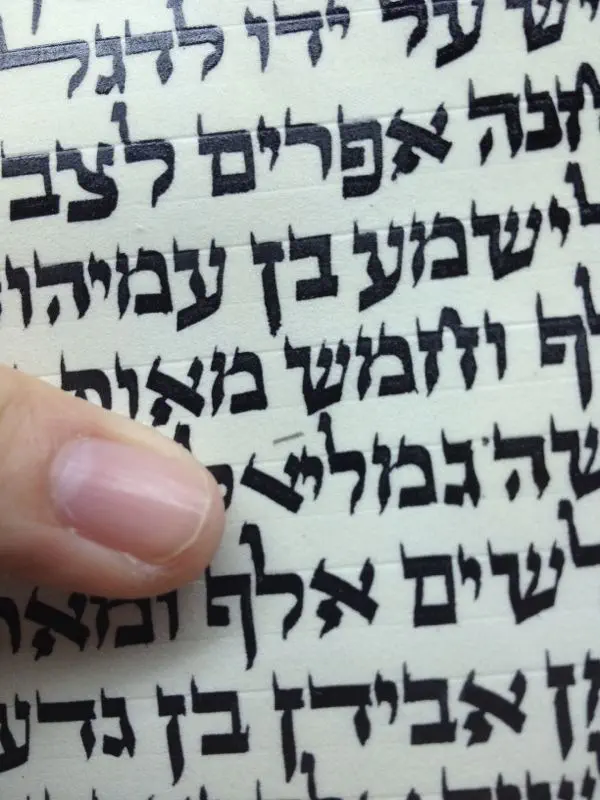 יש על ידו לדגל
חנה אפרים לצב
לישמע בן עמיהו
לף וחמש מאות
שה גמליאל
לשים אלף ומא
מן אבידן בן גדע